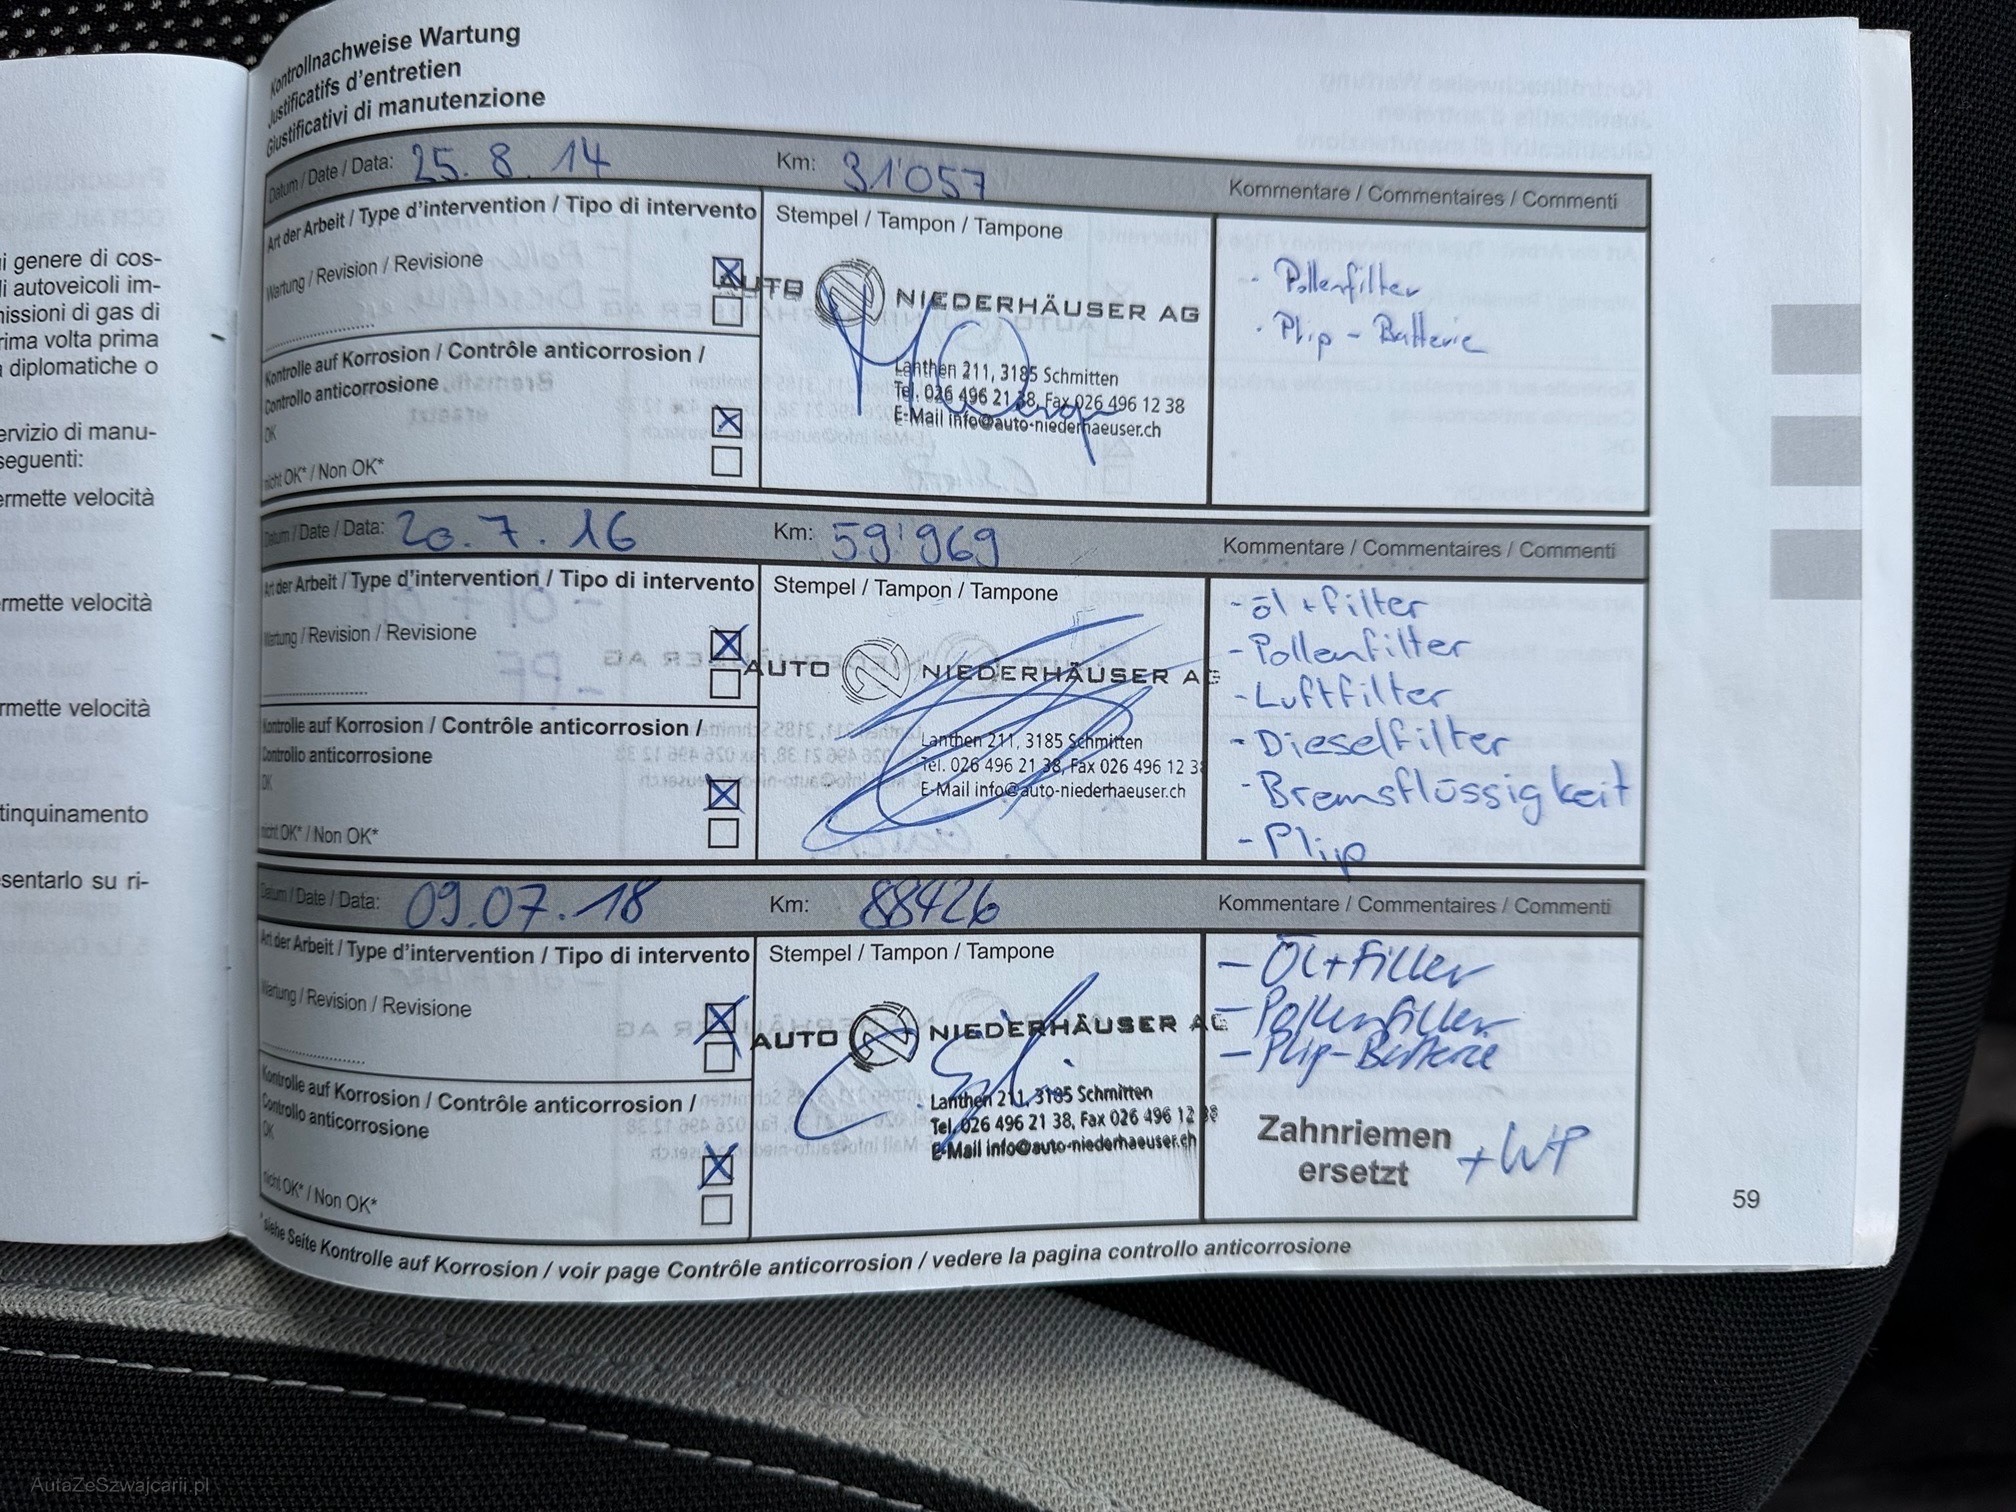 i genere di cos-
li autoveicoli im-
nissioni di gas di
rima volta prima
a diplomatiche o
ervizio di manu-
seguenti:
ermette velocità
ermette velocità
rmette velocità
tinquinamento
sentarlo su ri-
Kontrollnachweise Wartung
Justificatifs d'entretien
Giustificativi di manutenzione
Datum / Date / Data: 25. 8. 14 Km: 31'057 Kommentare / Commentaires / Commenti
Art der Arbeit / Type d'intervention / Tipo di intervento
Wartung / Revision / Revisione
Kontrolle auf Korrosion / Contrôle anticorrosion /
Controllo anticorrosione
OK
nicht OK* / Non OK*
Stempel / Tampon / Tampone
AUTO NIEDERHÄUSER AG
Lanthen 211, 3185 Schmitten
Tel. 026 496 21 38, Fax 026 496 12 38
E-Mail info@auto-niederhaeuser.ch
- Pollenfilter
- Plip - Batterie
Datum / Date / Data: 20. 7. 16 Km: 59'969 Kommentare / Commentaires / Commenti
Art der Arbeit / Type d'intervention / Tipo di intervento
Wartung / Revision / Revisione
Kontrolle auf Korrosion / Contrôle anticorrosion /
Controllo anticorrosione
OK
nicht OK* / Non OK*
Stempel / Tampon / Tampone
AUTO NIEDERHÄUSER AG
Lanthen 211, 3185 Schmitten
Tel. 026 496 21 38, Fax 026 496 12 38
E-Mail info@auto-niederhaeuser.ch
- Öl + Filter
- Pollenfilter
- Luftfilter
- Dieselfilter
- Bremsflüssigkeit
- Plip
Datum / Date / Data: 09.07.18 Km: 88426 Kommentare / Commentaires / Commenti
Art der Arbeit / Type d'intervention / Tipo di intervento
Wartung / Revision / Revisione
Kontrolle auf Korrosion / Contrôle anticorrosion /
Controllo anticorrosione
OK
nicht OK* / Non OK*
Stempel / Tampon / Tampone
AUTO NIEDERHÄUSER AG
Lanthen 211, 3185 Schmitten
Tel. 026 496 21 38, Fax 026 496 12 38
E-Mail info@auto-niederhaeuser.ch
- Öl + Filter
- Pollenfilter
- Plip-Batterie
Zahnriemen
ersetzt + WP
* siehe Seite Kontrolle auf Korrosion / voir page Contrôle anticorrosion / vedere la pagina controllo anticorrosione
59
AutaZeSzwajcarii.pl